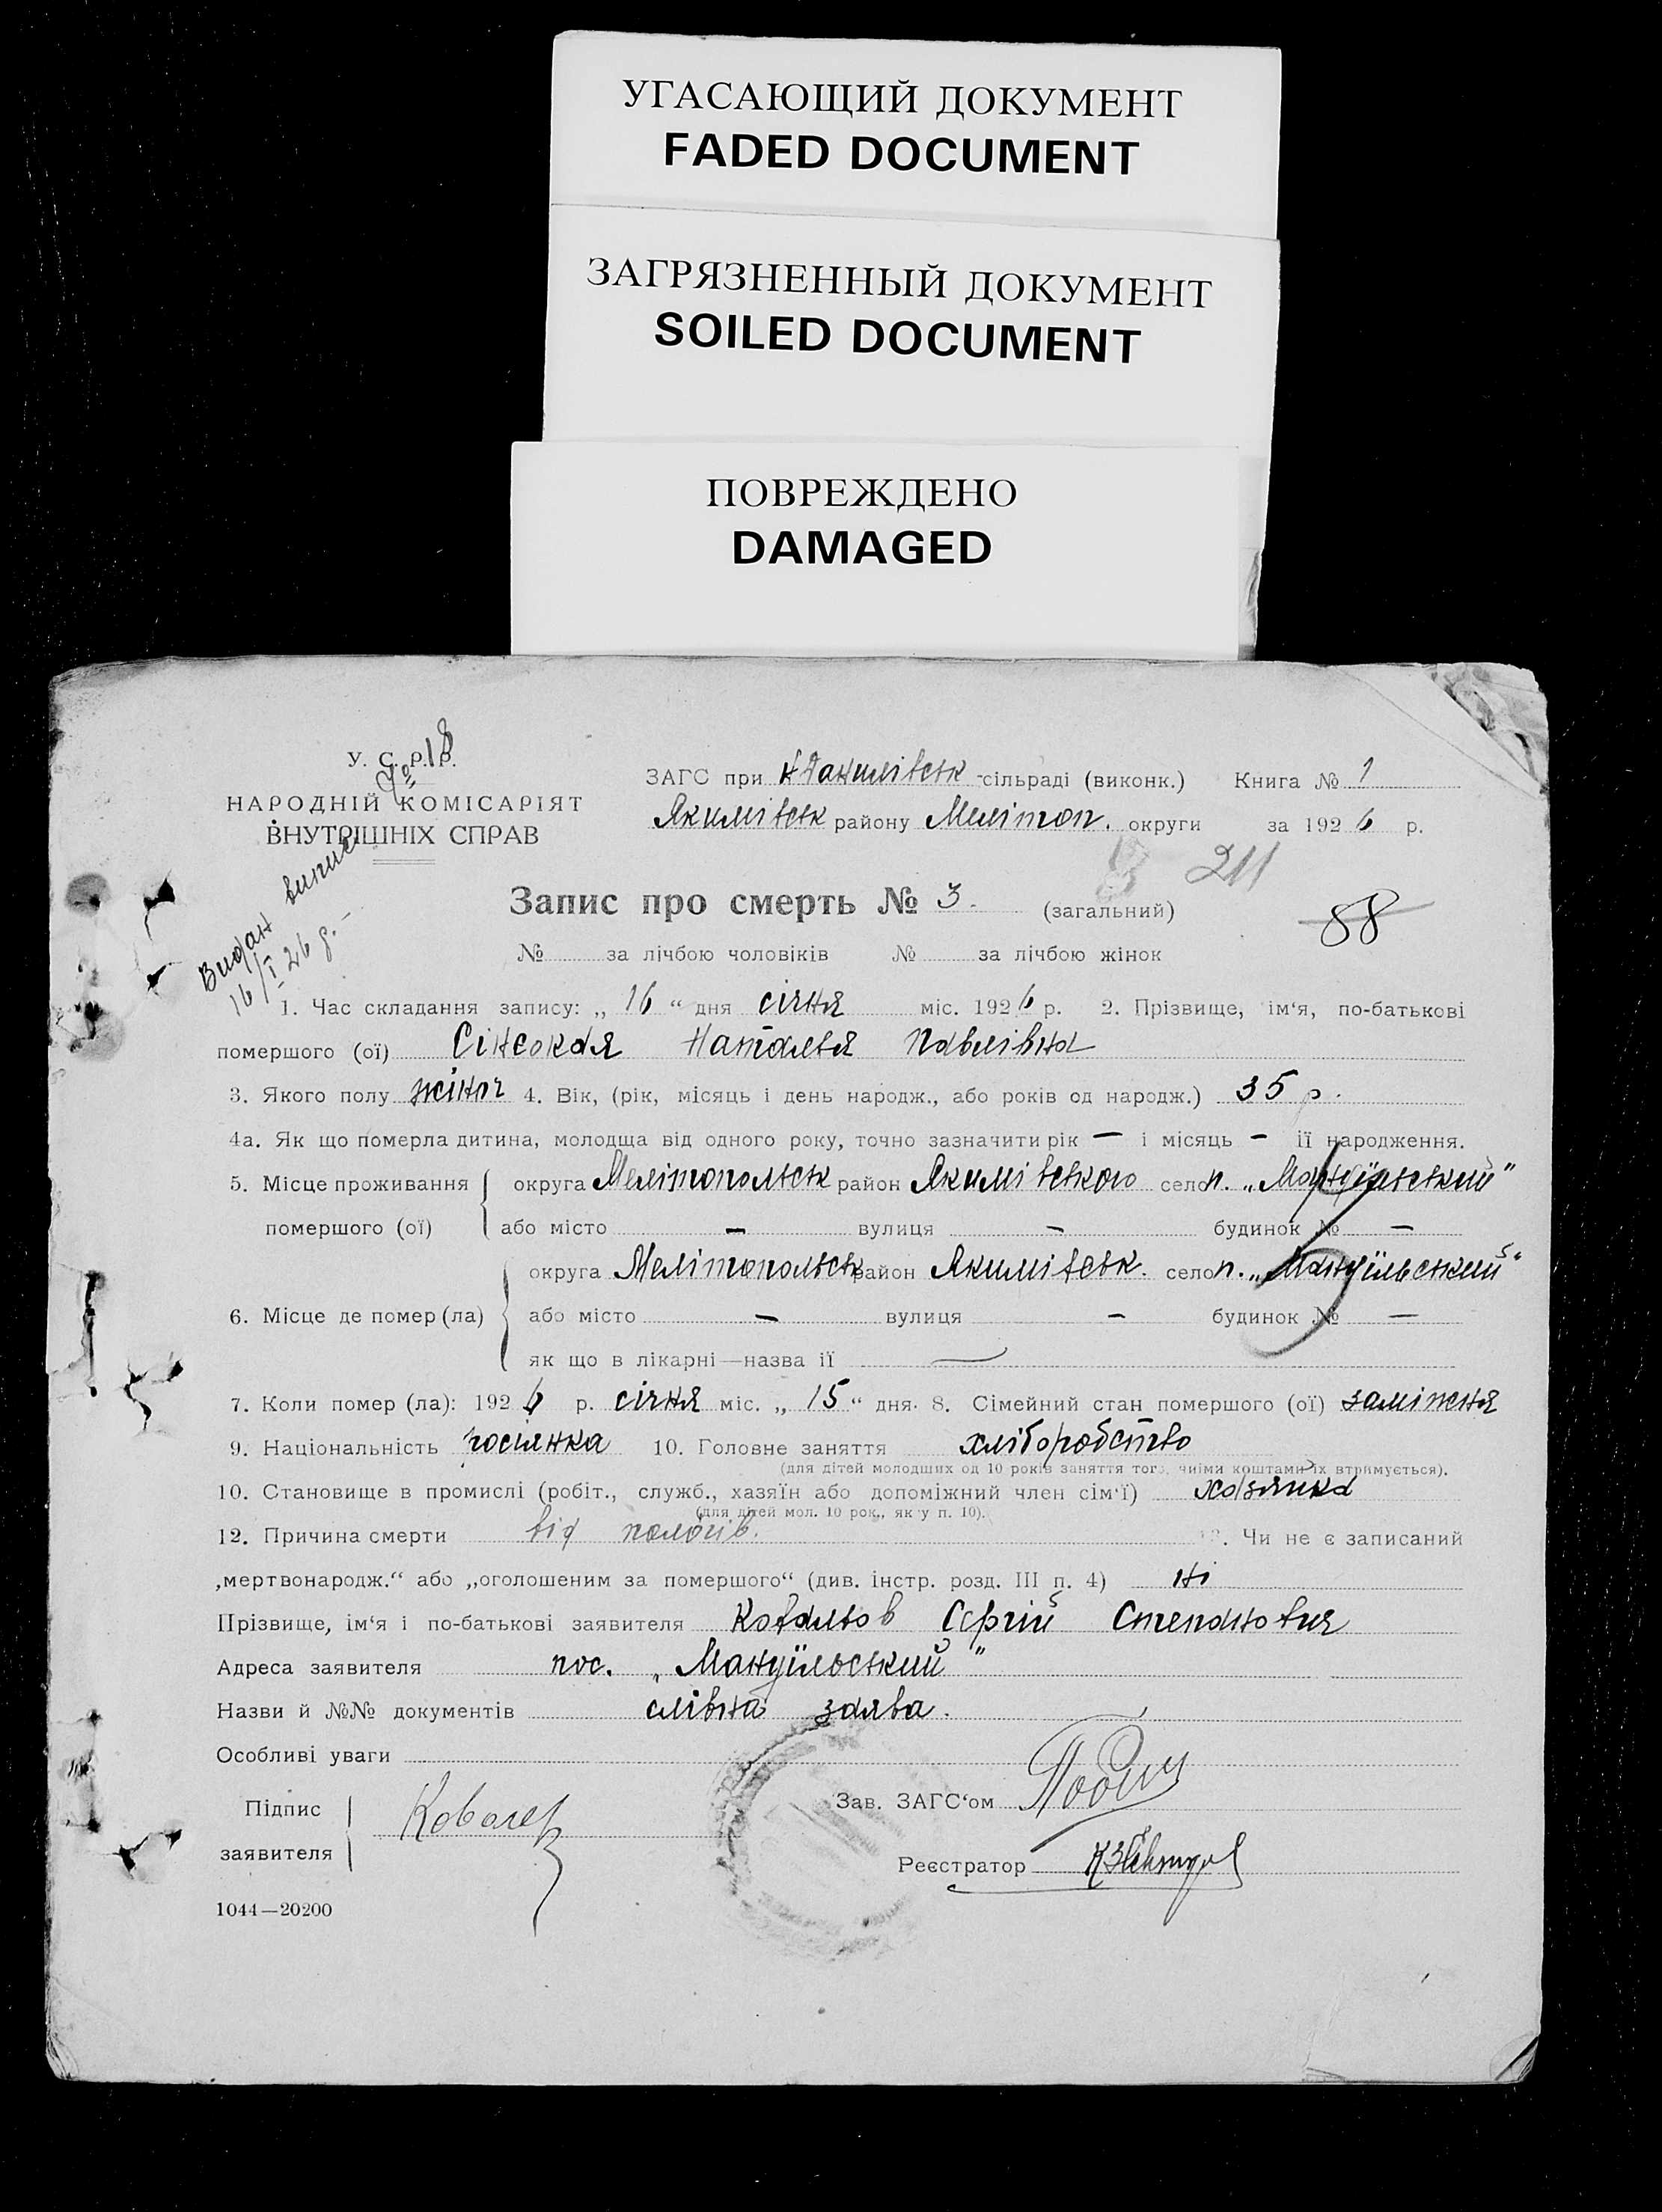 УГАСАЮЩИЙ ДОКУМЕНТ
FADED DOCUMENT
ЗАГРЯЗНЕННЫЙ ДОКУМЕНТ
SOILED DOCUMENT
ПОВРЕЖДЕНО
DAMAGED
У. С. Р. Р.
НАРОДНІЙ КОМІСАРІЯТ
ВНУТРІШНІХ СПРАВ
Видан
16/I 26 р.
ЗАГС при Данилівськ сільраді (виконк.) Книга № 1
Якимівськ району Мелітоп. округи за 1926 р.
211
Запис про смерть № 3. (загальний)
88
№ за лічбою чоловіків № за лічбою жінок
1. Час складання запису: „ 16 “ дня січня міс. 1926 р. 2. Прізвище, ім‘я, по-батькові
помершого (ої) Сінсокая Наталья Павлівна
3. Якого полу жіноч 4. Вік, (рік, місяць і день народж., або років од народж.) 35 р.
4а. Як що померла дитина, молодща від одного року, точно зазначити рік — і місяць — ії народження.
5. Місце проживання округа Мелітопольськ район Якимівського село п. „Мануїльський"
помершого (ої) або місто — вулиця — будинок № —
округа Мелітопольськ район Якимівськ. село п. „Мануїльський"
6. Місце де помер (ла) або місто — вулиця — будинок № —
як що в лікарні — назва ії —
7. Коли помер (ла): 1926 р. січня міс. „ 15 “ дня. 8. Сімейний стан помершого (ої) заміжня
9. Національність 10. Головне заняття хліборобство
(для дітей молодших од 10 років заняття того, чиїми коштами їх втримується).
10. Становище в промислі (робіт., служб., хазяїн або допоміжний член сім‘ї) хазяйка
(для дітей мол. 10 рок., як у п. 10).
12. Причина смерти від пологів. . Чи не є записаний
„мертвонародж.“ або „оголошеним за помершого“ (див. інстр. розд. III п. 4) ні
Прізвище, ім‘я і по-батькові заявителя Ковальов Сергій Степанович
Адреса заявителя пос. „Мануїльський"
Назви й №№ документів слівна заява.
Особливі уваги
Підпис
заявителя
Ковалев
Зав. ЗАГС‘ом
Реєстратор
1044—20200